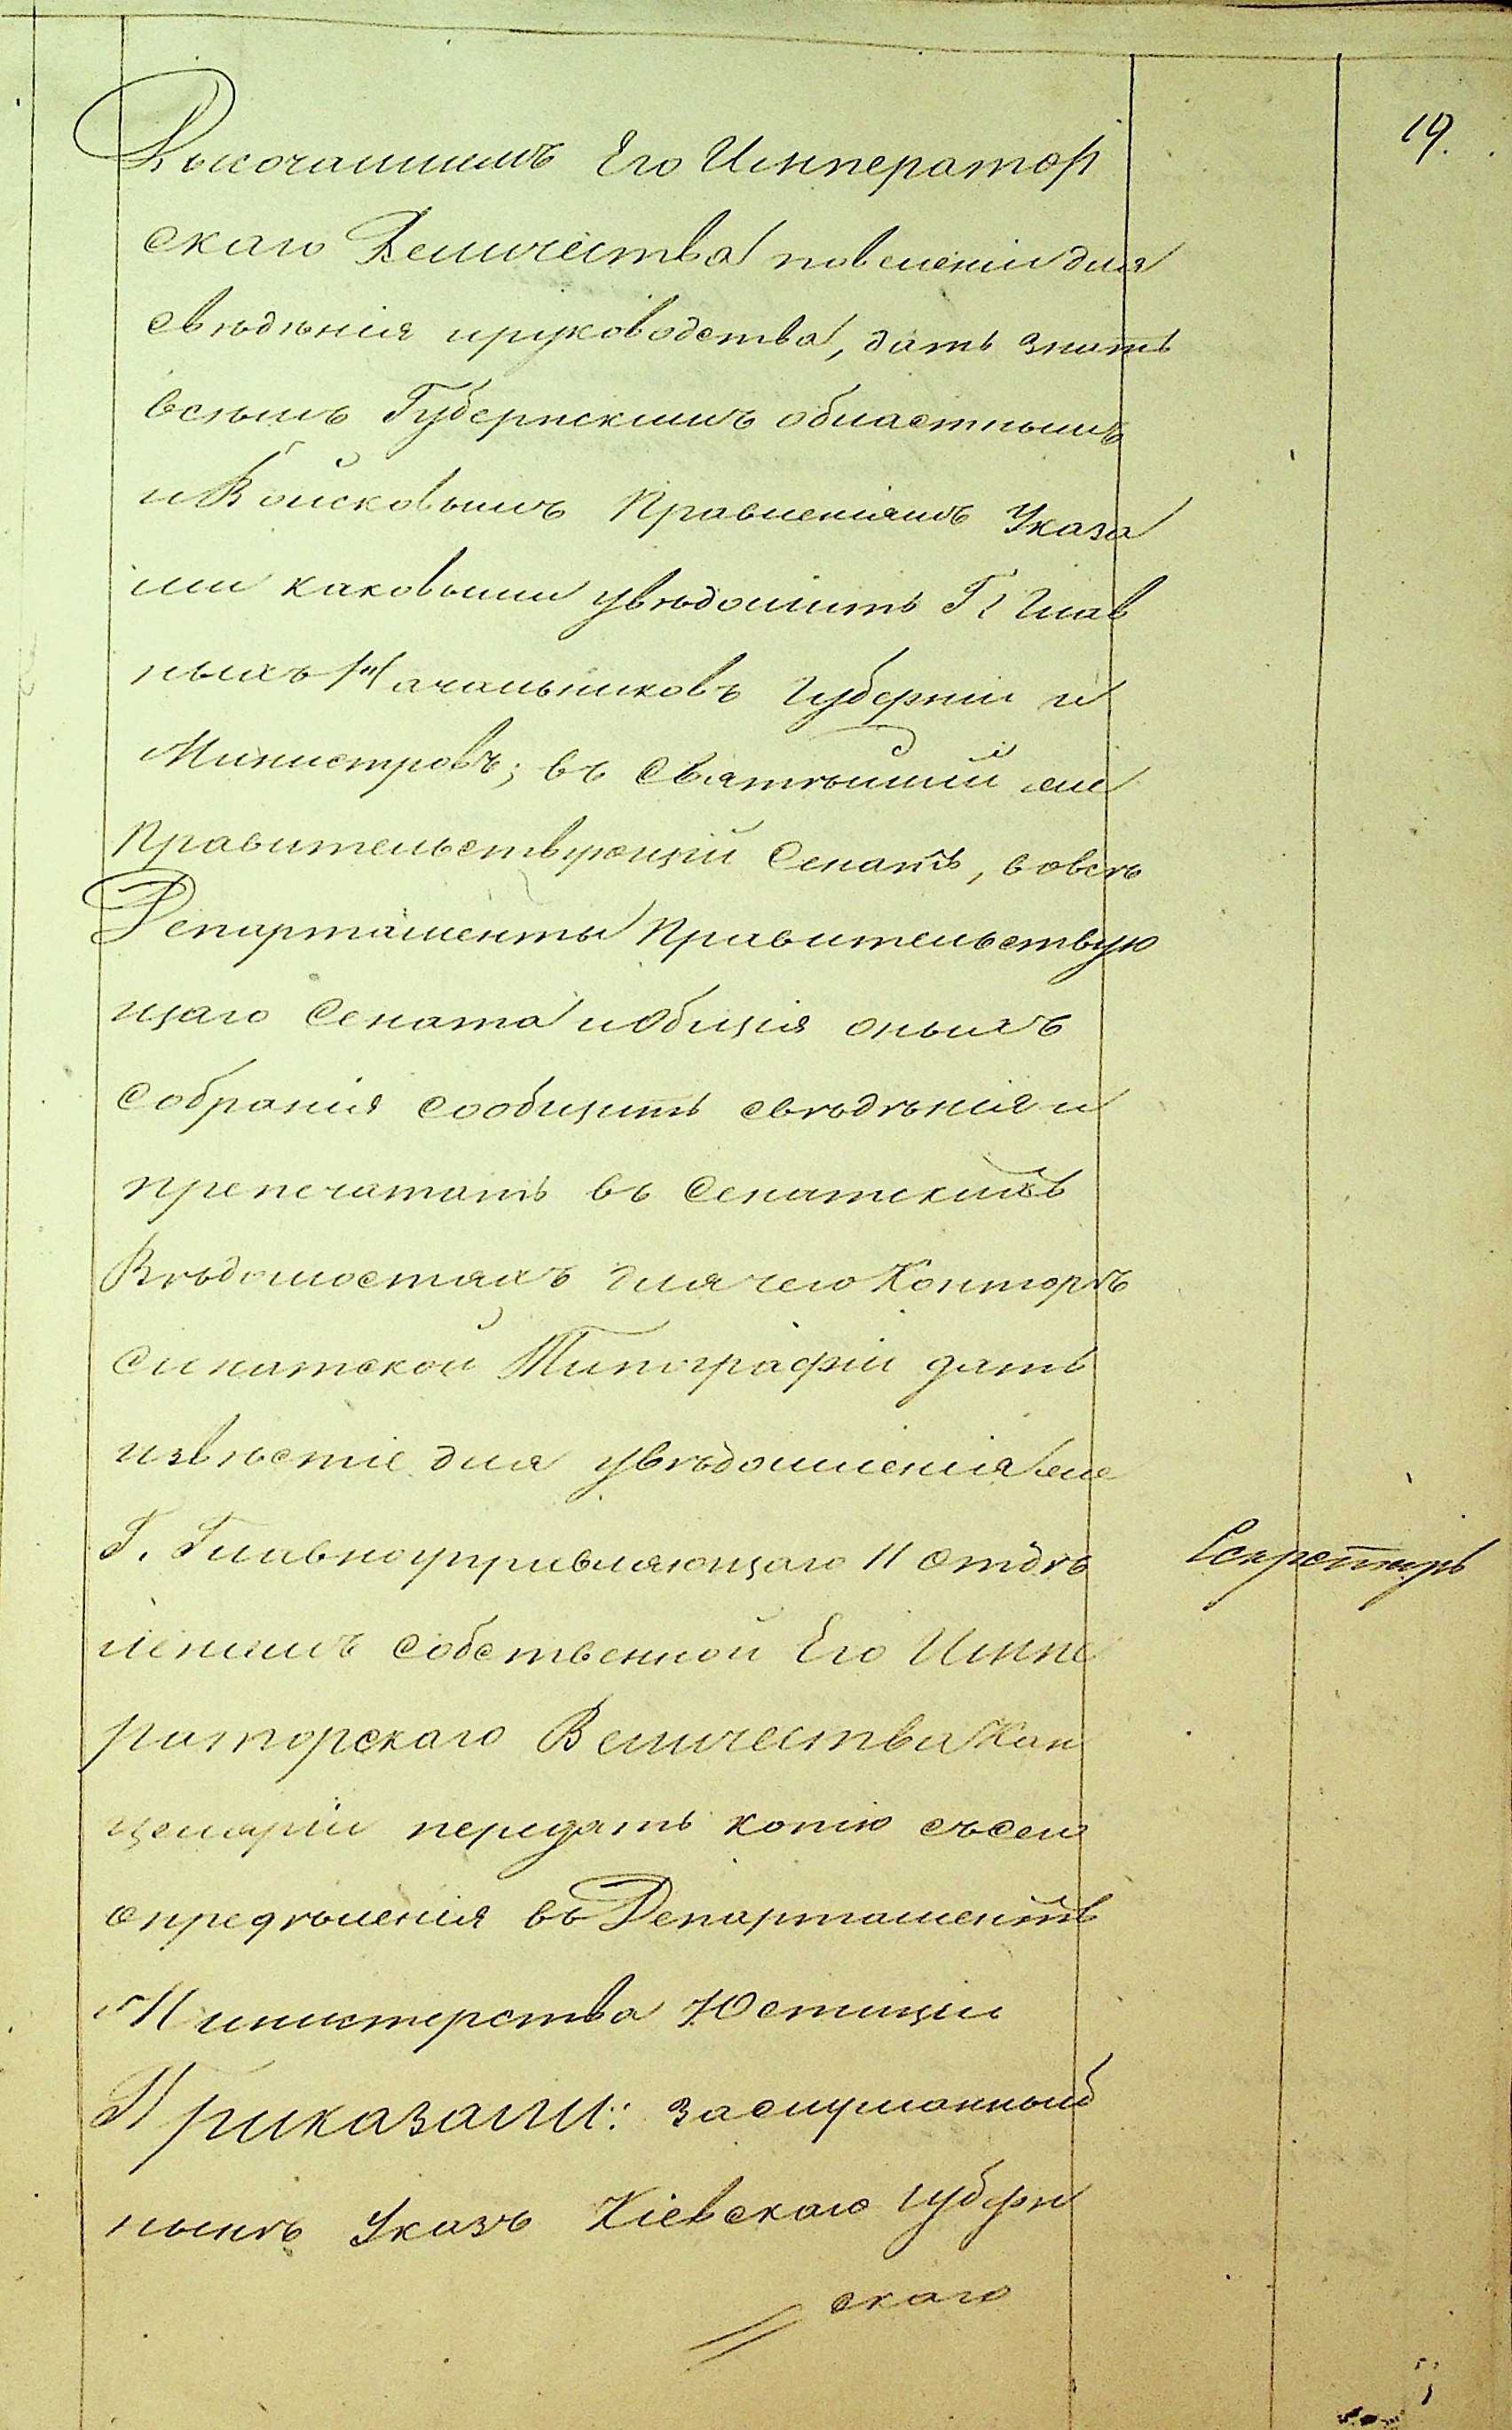 19.
Высочайшемъ Его Император
скаго Величества повеленіи для
свѣдѣнія и руководства, дать знать
всѣмъ Губернскимъ областнымъ
и Войсковымъ Правленіямъ Указа
ми каковыми увѣдомить Г. Глав
ныхъ Начальниковъ Губерніи и
Министровъ; въ Святѣйшій же
Правительствующій Сенатъ, вовсѣ
Департаменты Правительствую
щаго Сената и Общія оныхъ
собранія сообщить свѣдѣнія и
препечатать въ Сенатскихъ
Вѣдомостяхъ для чего Конторѣ
Сенатской Типографіи дать
извѣстіе для увѣдомленія же
Г. Главноуправляющаго II отдѣ
леніемъ собственной Его Импе
раторскаго Величества Кан
целяріи передать копію съ сего
опредѣленія въ Департаментъ
Министерства Юстиціи
Приказали: заслушанный
нынѣ Указъ Кіевскаго Губерн
скаго
Секретарь